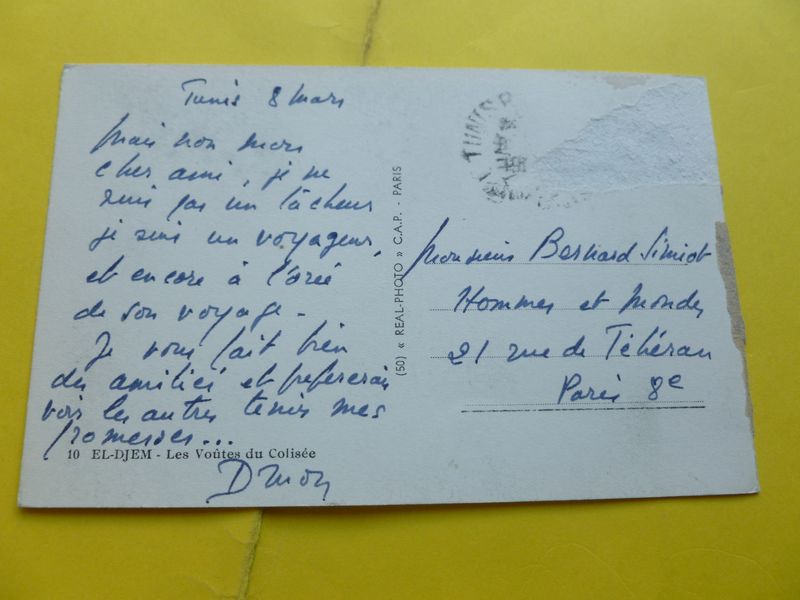 Tunis 8 mars
Mais non mon
cher ami, je ne
suis pas un lâcheur
je suis un voyageur,
et encore à l'orée
de son voyage -
Je vous fait bien
des amitiés et prefererais
voir les autres tenir mes
promesses...
10 EL-DJEM - Les Voûtes du Colisée
(50) « REAL-PHOTO » C.A.P. - PARIS
TUNIS R.P
Monsieur Bernard Simiot
Hommes et Mondes
21 rue de Téhéran
Paris 8e